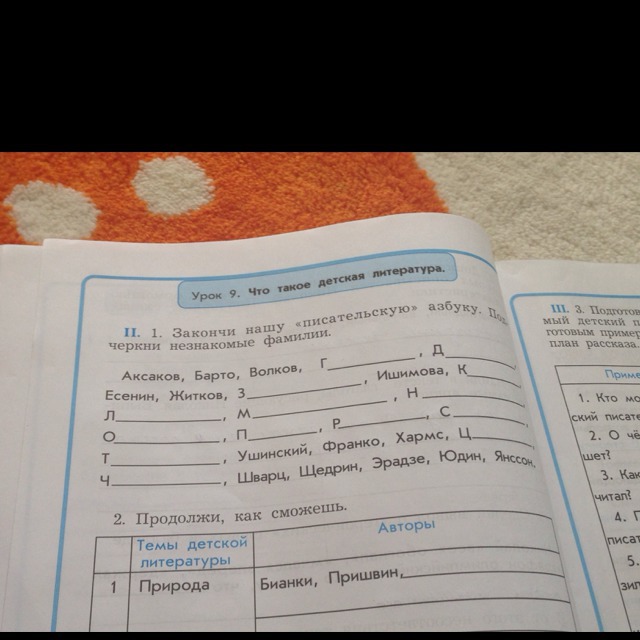 Урок 9. Что такое детская литература.
II. 1. Закончи нашу «писательскую» азбуку. Под-
черкни незнакомые фамилии.
Аксаков, Барто, Волков, Г________, Д________,
Есенин, Житков, З________, Ишимова, К________
Л________, М________, Н________
О________, П________, Р________, С________,
Т________, Ушинский, Франко, Хармс, Ц________
Ч________, Шварц, Щедрин, Эрадзе, Юдин, Янссон.
2. Продолжи, как сможешь.
Темы детской литературы
Авторы
1 Природа
Бианки, Пришвин,________
III. 3. Подготов
мый детский п
готовым пример
план рассказа.
Приме
1. Кто мо
ский писате
2. О чё
шет?
3. Как
читал?
4. П
писат
5.
зил